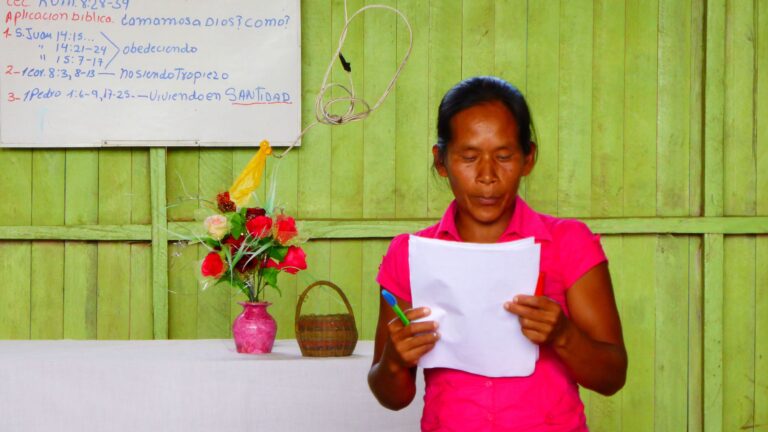 Rom. 8:28-39
Aplicación bíblica. ¿amamos a Dios? ¿como?
1. S. Juan 14:15...
" 14:21-24
" 15:7-17
obedeciendo
2-1 cor. 8:3, 8-13 — no siendo Tropiezo
3-1 Pedro 1:6-9, 17-25.— viviendo en SANTIDAD